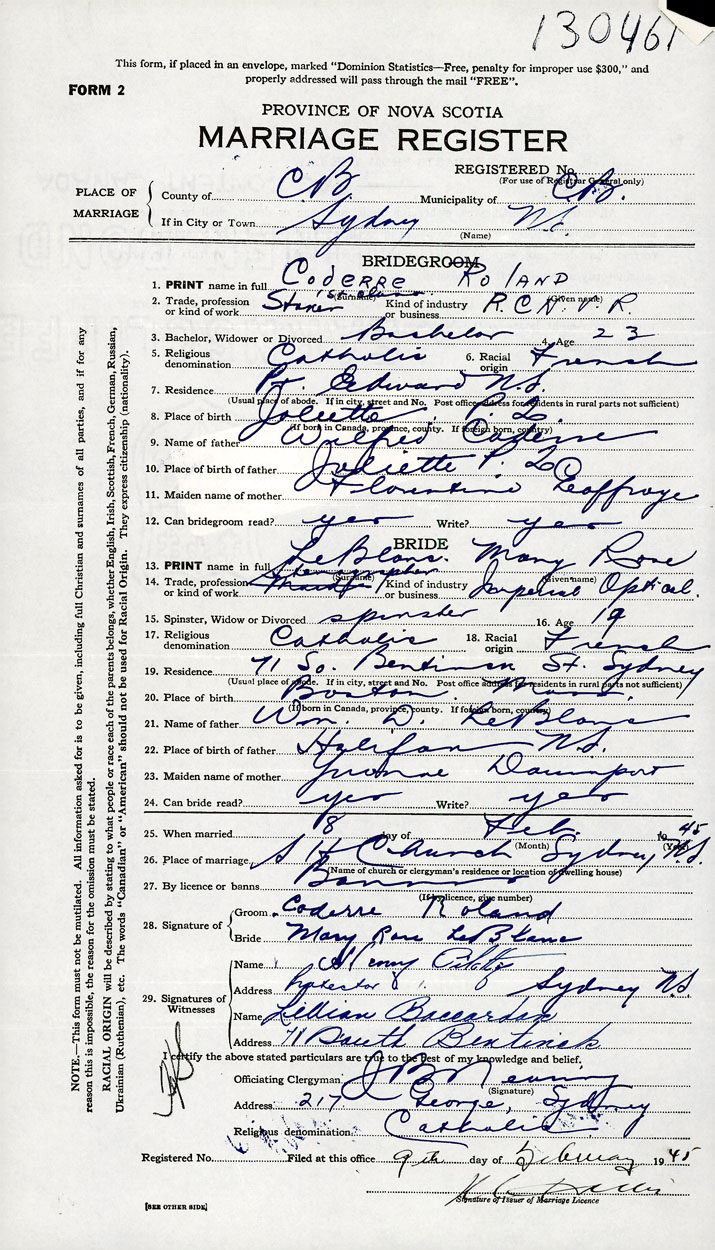 130461
This form, if placed in an envelope, marked "Dominion Statistics—Free, penalty for improper use $300," and
properly addressed will pass through the mail "FREE".
FORM 2
PROVINCE OF NOVA SCOTIA
MARRIAGE REGISTER
REGISTERED No.
(For use of Registrar General only)
PLACE OF MARRIAGE
County of CB Municipality of CB.
If in City or Town Sydney N.S.
(Name)
BRIDEGROOM
1. PRINT name in full Coderre Roland
(Surname) (Given name)
2. Trade, profession or kind of work Stoker 1st class Kind of industry or business R.C.N.V.R.
3. Bachelor, Widower or Divorced Bachelor 4. Age 23
5. Religious denomination Catholic 6. Racial origin French
7. Residence Pt. Edward N.S.
(Usual place of abode. If in city, street and No. Post office address for residents in rural parts not sufficient)
8. Place of birth Joliette P.Q.
(If born in Canada, province, county. If foreign born, country)
9. Name of father Wilfred Coderre
10. Place of birth of father Joliette P.Q.
11. Maiden name of mother Florentine Geoffroye
12. Can bridegroom read? yes Write? yes
BRIDE
13. PRINT name in full LeBlanc Mary Rose
(Surname) (Given name)
14. Trade, profession or kind of work Stenographer Kind of industry or business Imperial Optical.
15. Spinster, Widow or Divorced spinster 16. Age 19
17. Religious denomination Catholic 18. Racial origin French
19. Residence 71 So. Bentinck St. Sydney
(Usual place of abode. If in city, street and No. Post office address for residents in rural parts not sufficient)
20. Place of birth Boston, Mass.
(If born in Canada, province, county. If foreign born, country)
21. Name of father Wm. D. LeBlanc
22. Place of birth of father Halifax N.S.
23. Maiden name of mother Yvonne Davenport
24. Can bride read? yes Write? yes
25. When married 8 day of Feb. 1945
(Month) (Year)
26. Place of marriage S H Church Sydney, N.S.
(Name of church or clergyman's residence or location of dwelling house)
27. By licence or banns Banns
(If by licence, give number)
28. Signature of
Groom Coderre Roland
Bride Mary Rose LeBlanc
29. Signatures of Witnesses
Name Henry
Address Protector Sydney N.S.
Name Lillian
Address 71 South Bentinck
I certify the above stated particulars are true to the best of my knowledge and belief,
Officiating Clergyman
(Signature)
Address 217 George, Sydney
Religious denomination Catholic
Registered No. Filed at this office 9th day of February 1945
Signature of Issuer of Marriage Licence
[SEE OTHER SIDE]
NOTE.—This form must not be mutilated. All information asked for is to be given, including full Christian and surnames of all parties, and if for any
reason this is impossible, the reason for the omission must be stated.
RACIAL ORIGIN will be described by stating to what people or race each of the parents belongs, whether English, Irish, Scottish, French, German, Russian,
Ukrainian (Ruthenian), etc. The words "Canadian" or "American" should not be used for Racial Origin. They express citizenship (nationality).